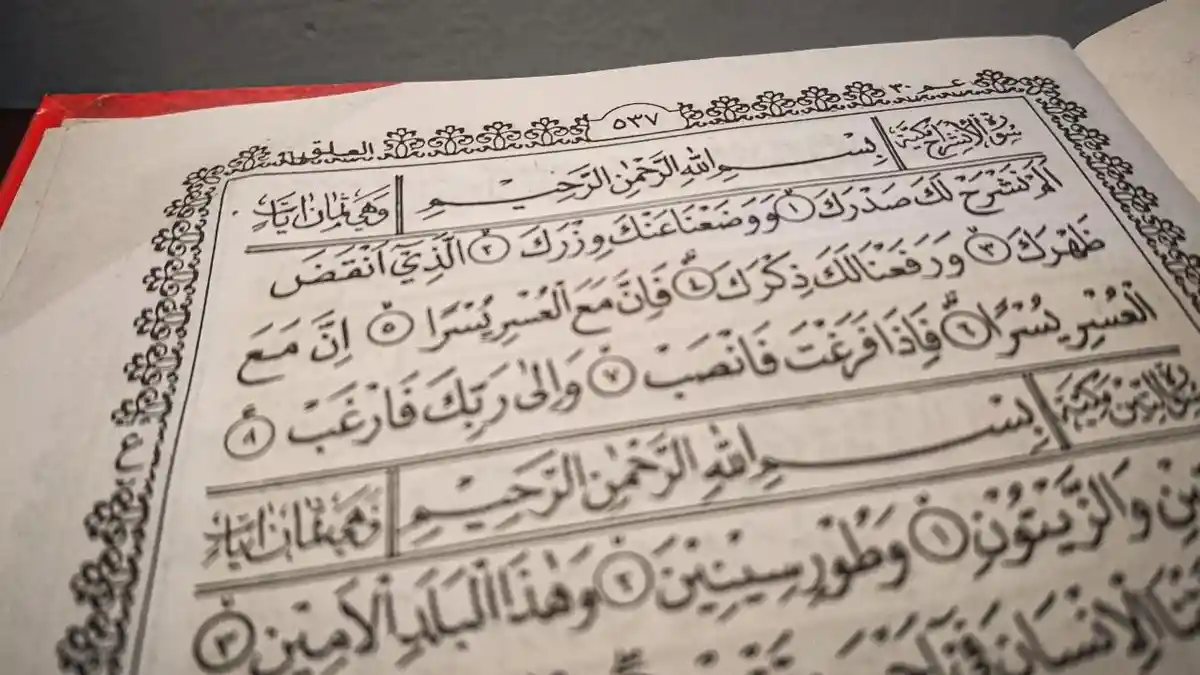 عـم ٣٠
٥٣٧
العلق
سورة الانشرح مكية
بسم الله الرحمن الرحيم
وهي ثمان ايات
اَلَمْ نَشْرَحْ لَكَ صَدْرَكَ ١ وَوَضَعْنَا عَنْكَ وِزْرَكَ ٢ الَّذِيٓ اَنْقَضَ
ظَهْرَكَ ٣ وَرَفَعْنَا لَكَ ذِكْرَكَ ٤ فَاِنَّ مَعَ الْعُسْرِ يُسْرًا ٥ اِنَّ مَعَ
الْعُسْرِ يُسْرًا ٦ فَاِذَا فَرَغْتَ فَانْصَبْ ٧ وَاِلٰى رَبِّكَ فَارْغَبْ ٨
سورة التين مكية
بِسْمِ اللّٰهِ الرَّحْمٰنِ الرَّحِيْمِ
وهي ثمان ايات
وَالزَّيْتُوْنِ ١ وَطُوْرِ سِيْنِيْنَ ٢ وَهٰذَا الْبَلَدِ الْاَمِيْنِ ٣
الْاِنْسَانَ فِيْٓ